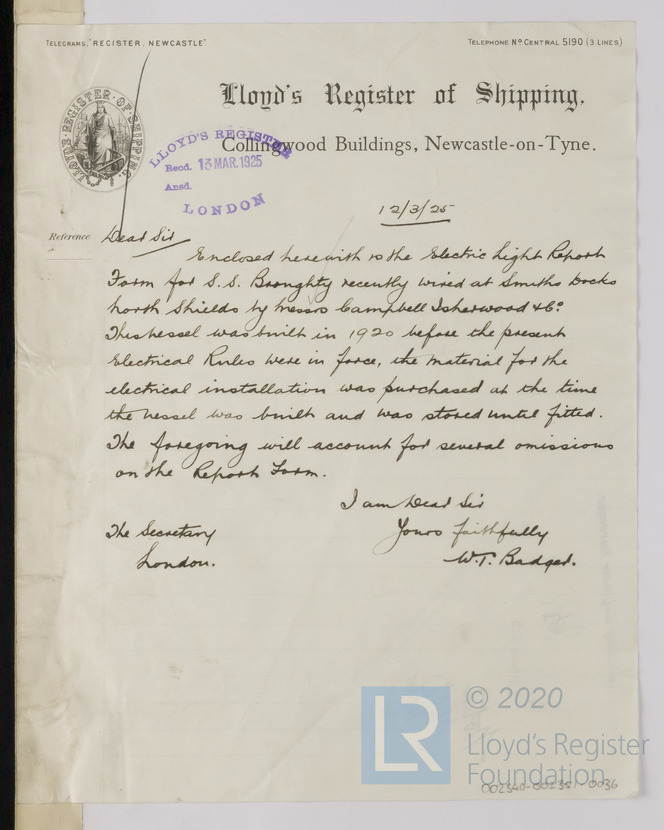 TELEGRAMS, "REGISTER, NEWCASTLE"
TELEPHONE No CENTRAL 5190 (3 LINES)
LLOYD'S REGISTER OF SHIPPING.
Lloyd's Register of Shipping.
Collingwood Buildings, Newcastle-on-Tyne.
LLOYD'S REGISTER
Recd. 13 MAR. 1925
Ansd.
LONDON
12/3/25
Reference
Dear Sir
Enclosed herewith is the Electric Light Report
Form for S.S. Broughty recently wired at Smiths Docks
North Shields by Messrs Campbell Isherwood & Co.
This vessel was built in 1920 before the present
Electrical Rules were in force, the material for the
electrical installation was purchased at the time
the vessel was built and was stored until fitted.
The foregoing will account for several omissions
on the Report Form.
I am Dear Sir
The Secretary
Yours faithfully
London.
W.T. Badger.
LR
© 2020
Lloyd's Register
Foundation
002340-002351-0036